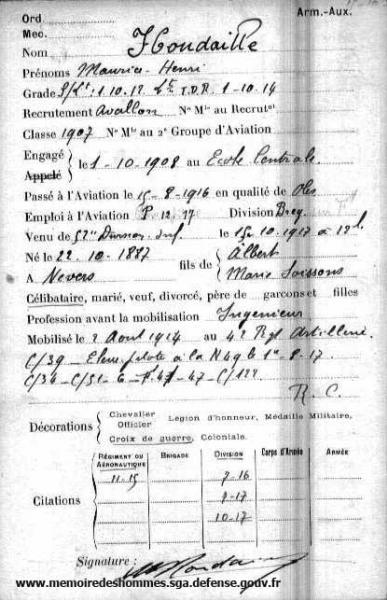 Ord
Arm.-Aux.
Mec.
Nom Houdaille
Prénoms Maurice - Henri
Grade S/Lt : 1.10.12 Lt T.D.R. 1-10-14
Recrutement Avallon Nº Mle au Recrutet
Classe 1907 Nº Mle au 2e Groupe d'Aviation
Engagé
Appelé
le 1-10-1908 au Ecole Centrale
Passé à l'Aviation le 15-8-1916 en qualité de Obs
Emploi à l'Aviation P. 12.17 Division Breg.
Venu de 52e Inf. le 15.10.1917 à
Né le 22-10-1887
A Nevers
fils de
Albert
Marie Soissons
Célibataire, marié, veuf, divorcé, père de garçons et filles
Profession avant la mobilisation Ingenieur
Mobilisé le 2 Aout 1914 au 4e Rgt Artillerie
C/39 - Eleve pilote à la N49 le 1er-8-17.
C/34 - C/51 - 6 - - 47 - C/122
R. C.
Décorations
Chevalier
Officier
Légion d'honneur, Médaille Militaire,
Croix de guerre, Coloniale.
Citations
Régiment ou Aéronautique Brigade Division Corps d'Armée Armée
11-15 7-16
8-17
10-17
Signature : Houdaille
www.memoiredeshommes.sga.defense.gouv.fr